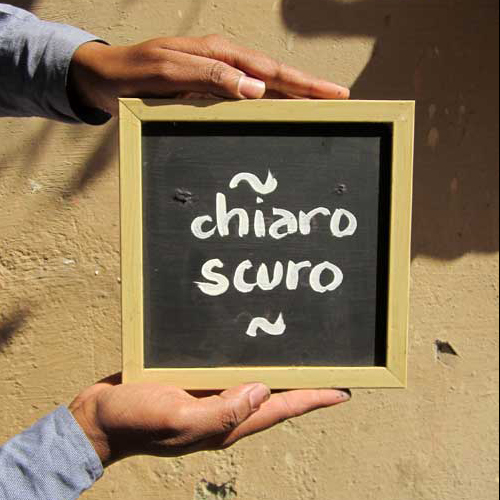 ~
chiaro
scuro
~